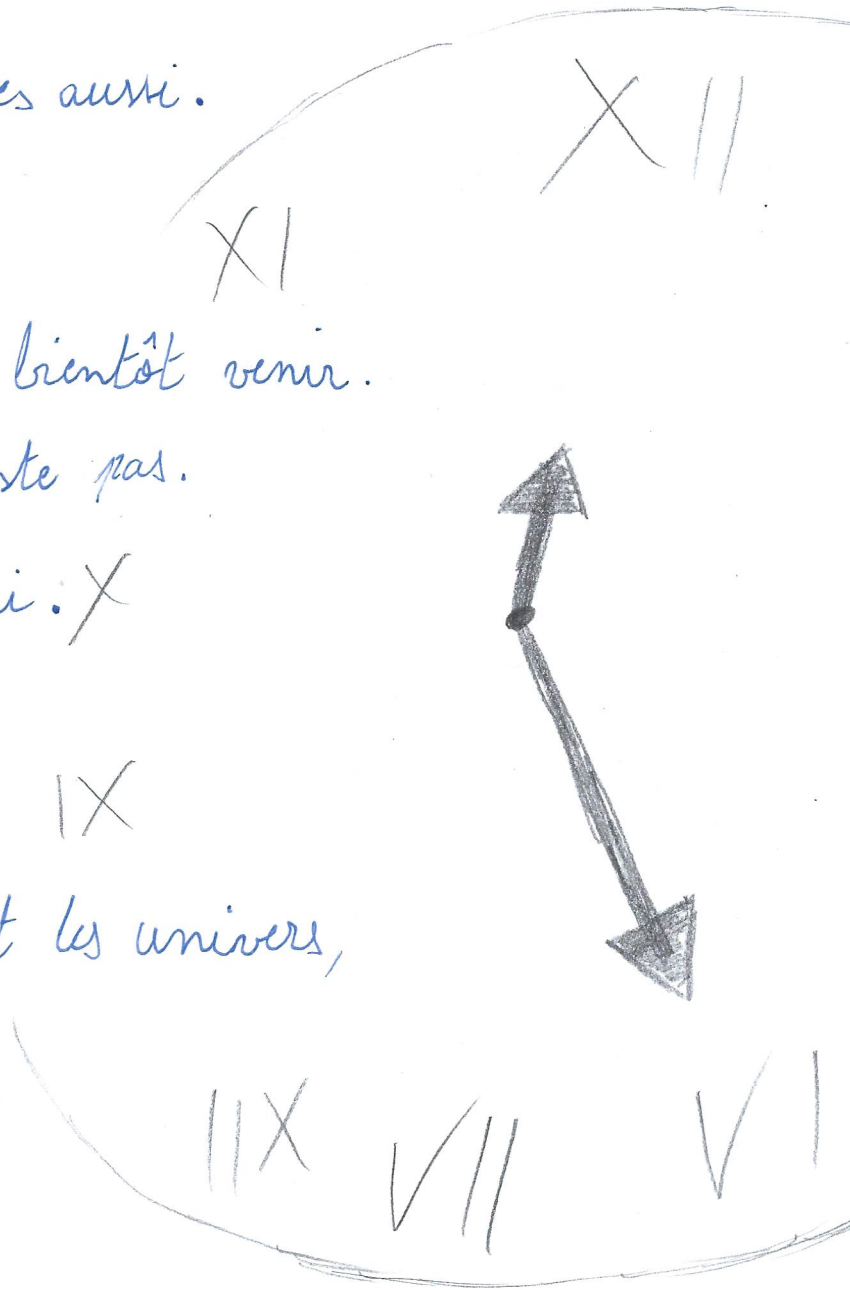 es aussi.
XII
XI
bientôt venir.
ste pas.
i. X
IX
t les univers,
IIX
VII
VI